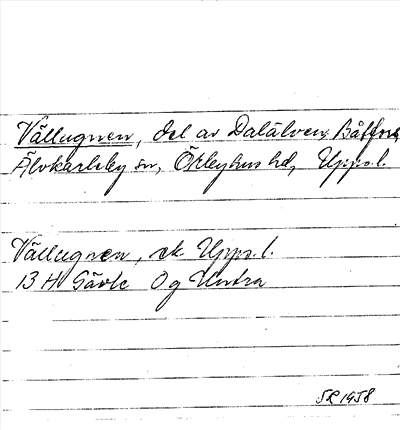 Vällugnen, del av Dalälven, Båtfors,
Älvkarleby sn, Örbyhus hd, Upps.l.
Vällugnen, ek. Upps. l.
13 H Gävle Og Untra
SR 1958